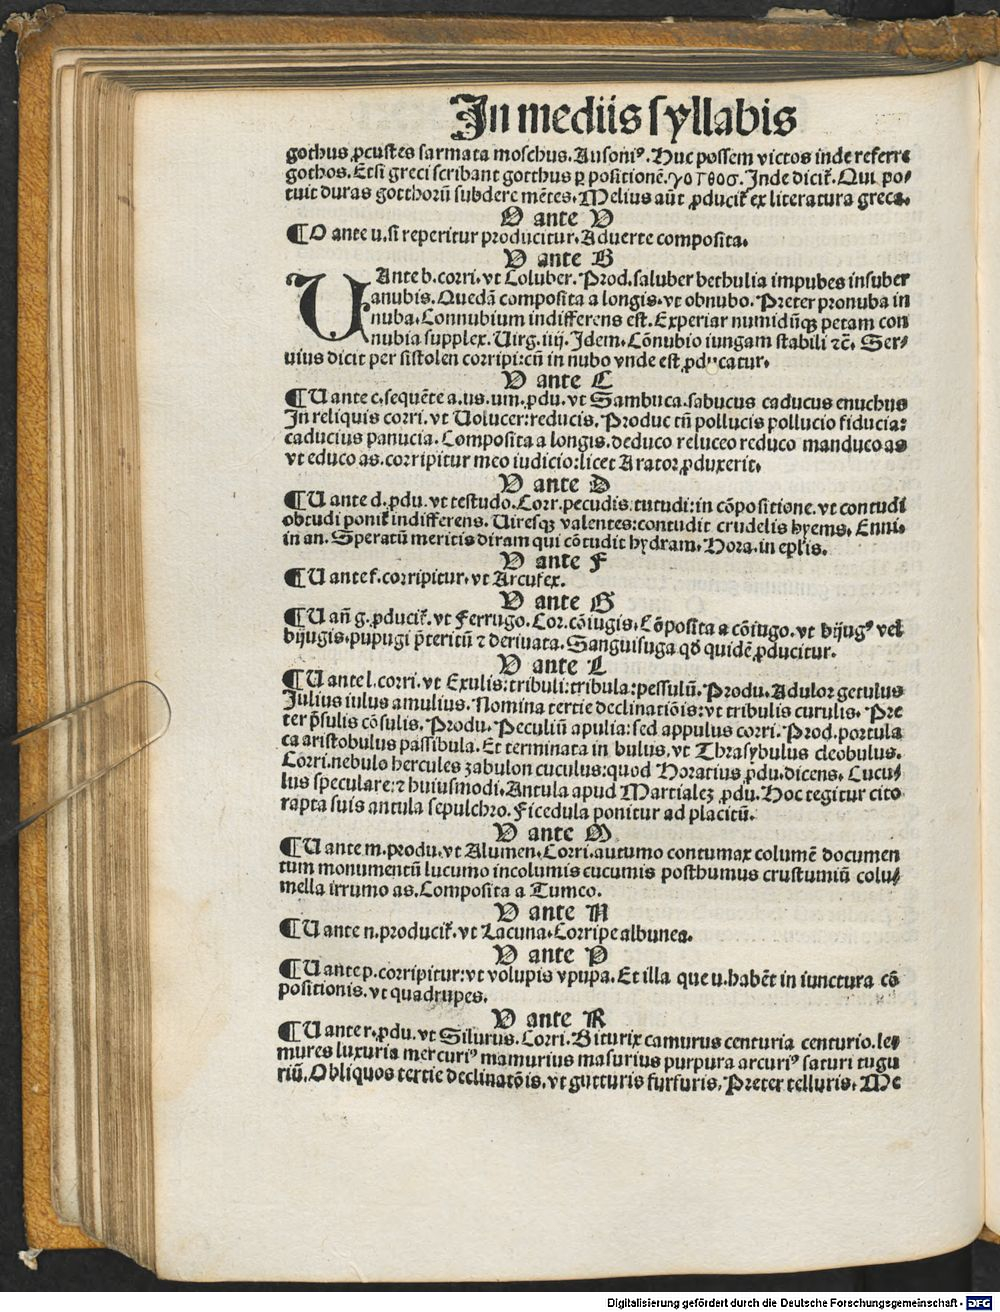 In mediis syllabis
gothus ꝓcustes sarmata moschus. Ausoniꝰ. Huc possem victos inde referre
gothos. Etsi greci scribant gotthus ꝑ positionẽ. γοτθοσ. Inde dicit̃. Qui po⸗
tuit duras gotthorũ subdere mẽtes. Melius aũt ꝓducit̃ ex literatura greca.
O ante V
¶O ante u. si reperitur producitur. Aduerte composita.
V ante B
UAnte b. corri. vt Coluber. Prod. saluber bethulia impubes insuber
anubis. Quedã composita a longis. vt obnubo. Preter pronuba in
nuba. Connubium indifferens est. Experiar numidũqꝫ petam con
nubia supplex. Uirg. iiij. Idem. Cõnubio iungam stabili ⁊c̃. Ser⸗
uius dicit per sistolen corripi: cũ in nubo vnde est ꝓducatur.
V ante C
¶U ante c. sequẽte a. us. um. ꝓdu. vt Sambuca. sabucus caducus enuchus
In reliquis corri. vt Uolucer: reducis. Produc tñ pollucis pollucio fiducia:
caducius panucia. Composita a longis. deduco reluceo reduco manduco as
vt educo as. corripitur meo iudicio: licet Arator ꝓduxerit.
V ante D
¶U ante d. ꝓdu. vt testudo. Corr. pecudis. tutudi: in cõpositione. vt contudi
obtudi ponit̃ indifferens. Uiresqꝫ valentes: contudit crudelis hyems. Enni.
in an. Speratũ meritis diram qui cõtudit hydram. Hora. in ep̃lis.
V ante F
¶U ante f. corripitur. vt Arcufex.
V ante G
¶U añ g. ꝓducit̃. vt Ferrugo. Cor. cõiugis. Cõposita a cõiugo. vt bijugꝰ vel
bijugis. pupugi p̃teritũ ⁊ deriuata. Sanguisuga qđ quidẽ ꝓducitur.
V ante L
¶U ante l. corri. vt Exulis: tribuli: tribula: pessulũ. Produ. Adulor getulus
Julius iulus amulius. Nomina tertie declinatiõis: vt tribulis curulis. Pre
ter p̃sulis cõsulis. Produ. Peculiũ apulia: sed appulus corri. Prod. portula
ca aristobulus passibula. Et terminata in bulus. vt Thrasybulus cleobulus.
Corri. nebulo hercules zabulon cuculus: quod Horatius ꝓdu. dicens. Cucu⸗
lus speculare: ⁊ huiusmodi. Antula apud Martialeꝫ ꝓdu. Hoc tegitur cito
rapta suis antula sepulchro. Ficedula ponitur ad placitũ.
V ante M
¶U ante m. produ. vt Alumen. Corri. autumo contumax columẽ documen
tum monumentũ lucumo incolumis cucumis posthumus crustumiũ colu⸗
mella irrumo as. Composita a Tumeo.
V ante N
¶U ante n. producit̃. vt Lacuna. Corripe albunea.
V ante P
¶U ante p. corripitur: vt volupis vpupa. Et illa que u. habẽt in iunctura cõ
positionis. vt quadrupes.
V ante R
¶U ante r. ꝓdu. vt Silurus. Corri. Biturix camurus centuria centurio. le⸗
mures luxuria mercuriꝰ mamurius masurius purpura arcuriꝰ saturi tugu
riũ. Obliquos tertie declinatõis. vt gutturis furfuris. Preter telluris. Me
Digitalisierung gefördert durch die Deutsche Forschungsgemeinschaft - DFG